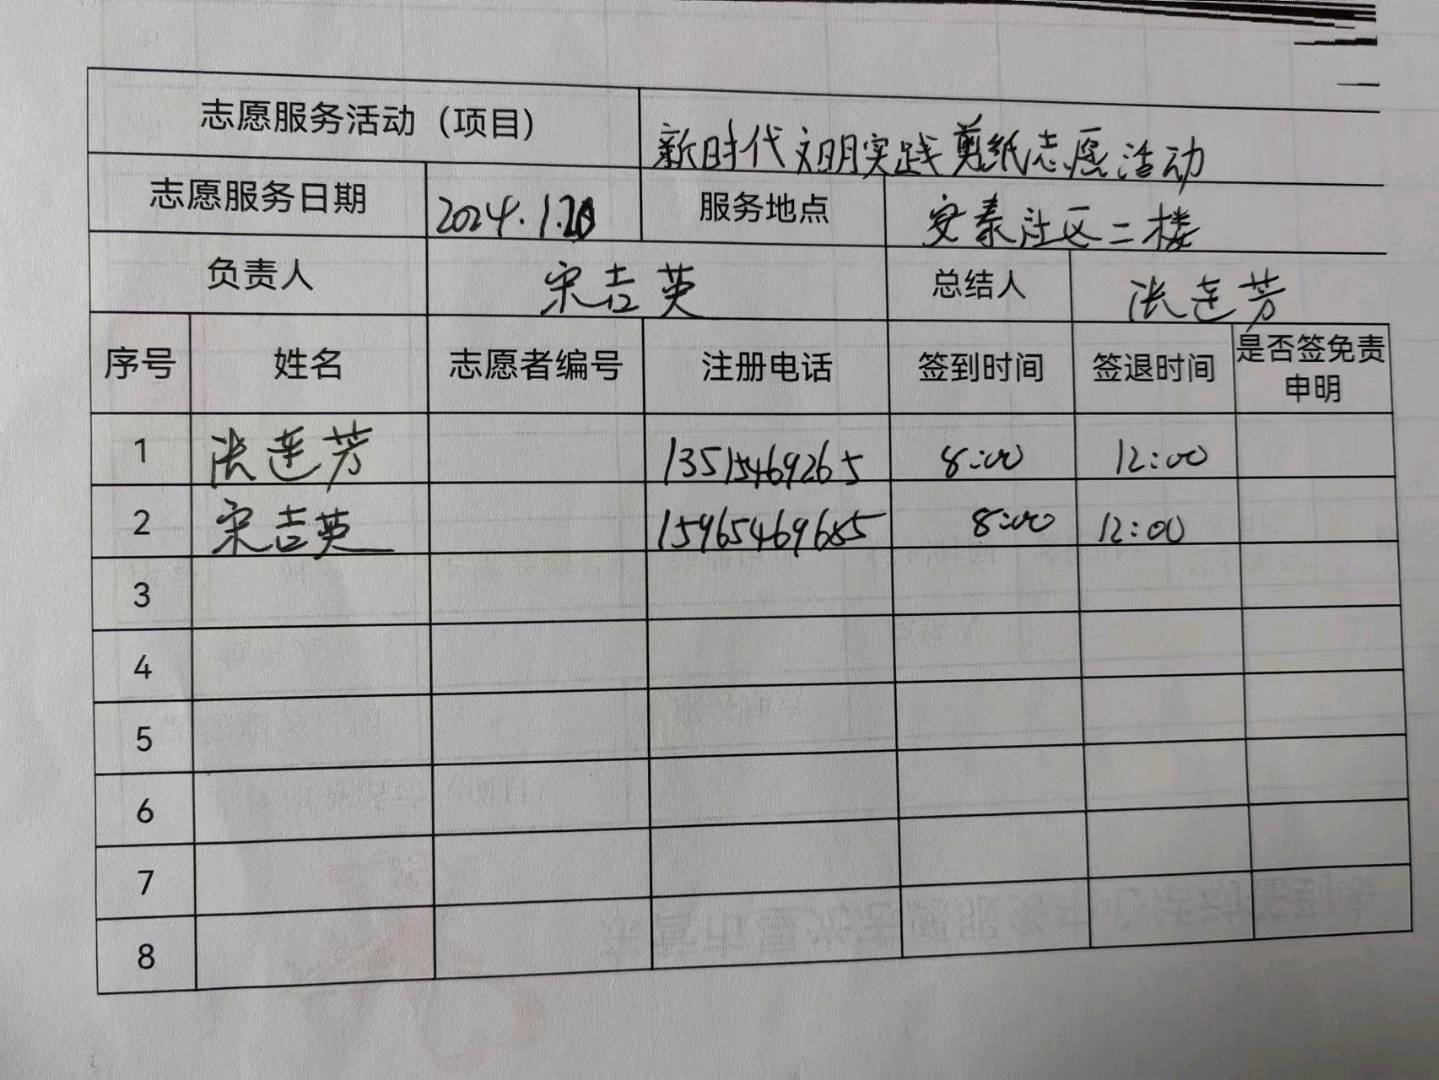 志愿服务活动（项目） 新时代文明实践剪纸志愿活动
志愿服务日期 2024.1.20 服务地点 安泰社区二楼
负责人 宋吉英 总结人 张莲芳
序号 姓名 志愿者编号 注册电话 签到时间 签退时间 是否签免责申明
1 张莲芳 13515469265 8:00 12:00
2 宋吉英 15965469685 8:00 12:00
3
4
5
6
7
8